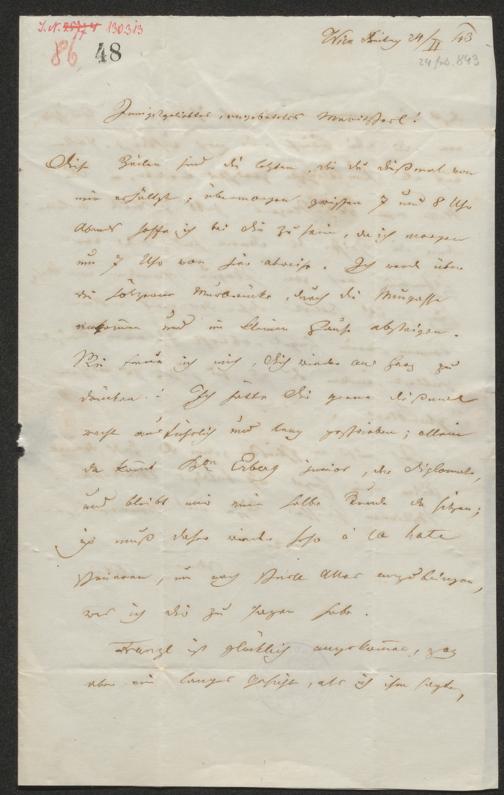 I.N. 130313
86 48
Wien Freitag 24/II 43
24 feb. 843
Innigstgeliebtes, angebetetes
Diese Zeilen sind die letzten, die du dießmal von
mir erhältst; übermorgen zwischen 7 und 8 Uhr
Abends hoffe ich bei dir zu sein, da ich morgen
um 7 Uhr von hier abreise. Ich werde über
die hölzerne Murbrücke, durch die Murgasse
und im kleinen Hause absteigen.
Wie freue ich mich, dich wieder ans Herz zu
drücken! Ich hätte dir gerne dießmal
recht ausführlich und lang geschrieben; allein
da kommt Erberg junior, der Diplomat,
und bleibt mir eine halbe Stunde da sitzen;
ich muß daher wieder sehr à la hate
um noch Alles anzubringen,
was ich dir zu sagen habe.
Franzl ist glücklich angekommen, zog
aber ein langes Gesicht, als ich ihm sagte,